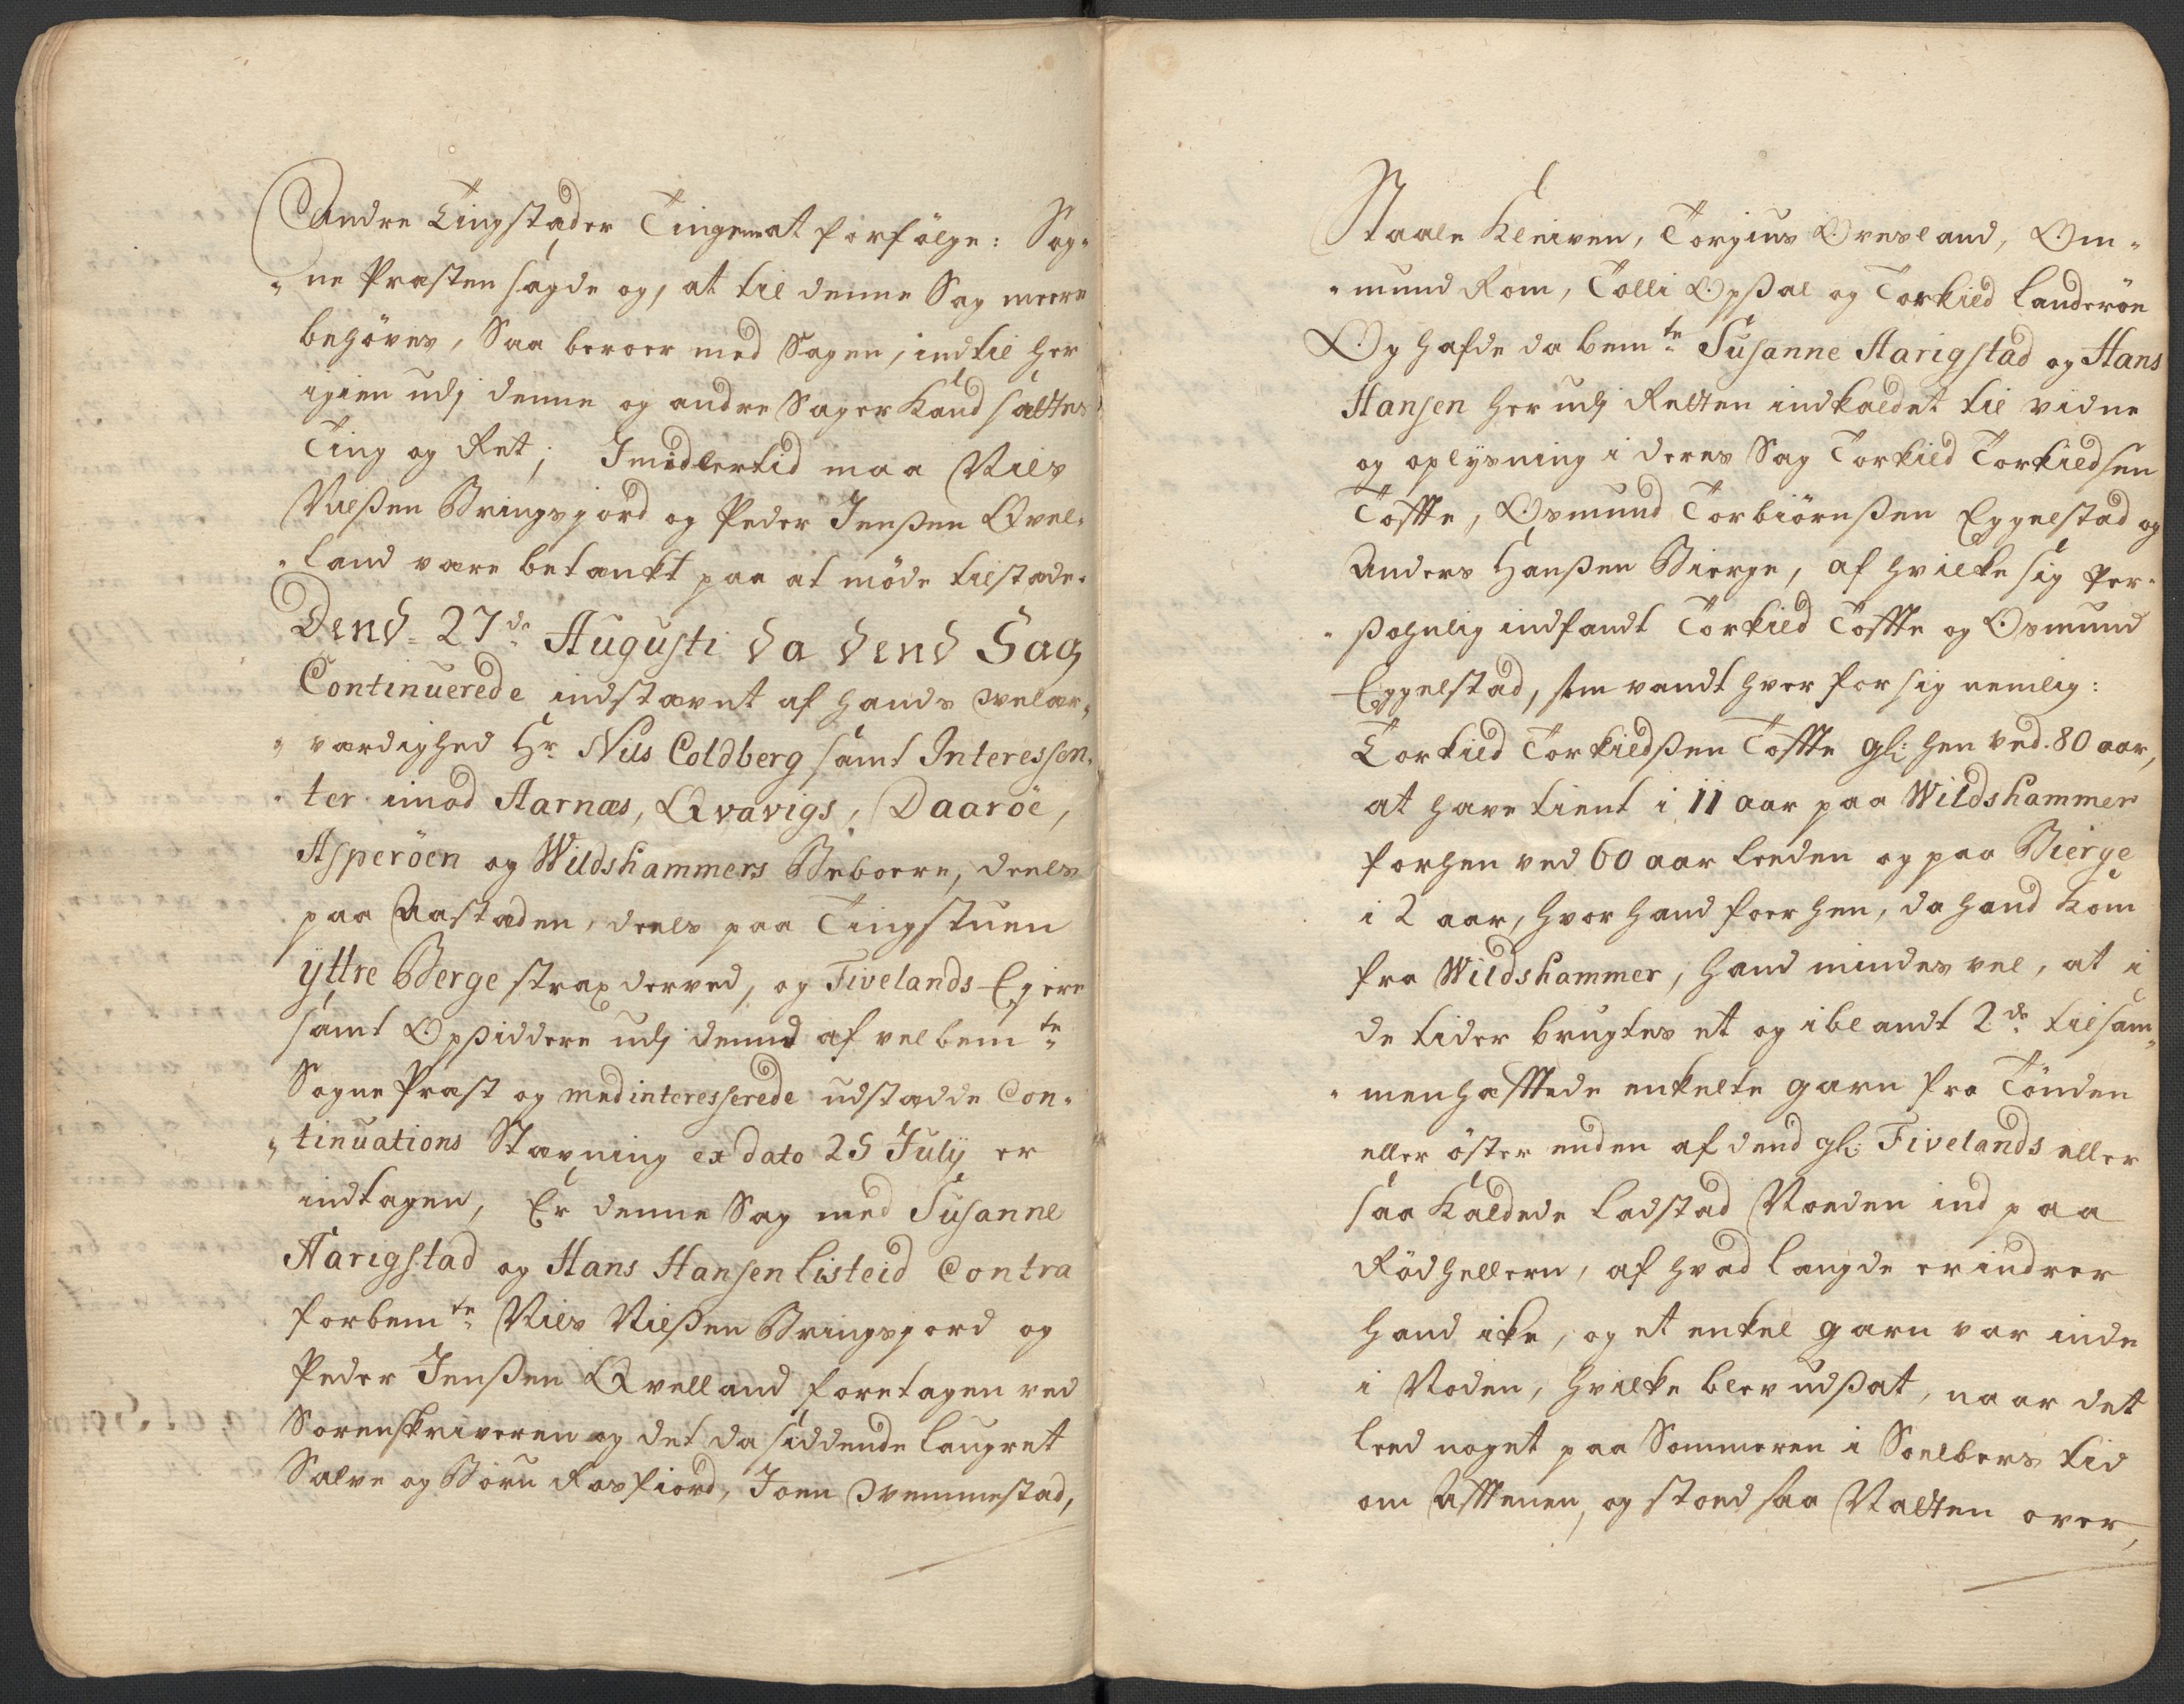 andre Tingstæder Tingene at forfølge: Sog-
„ne Præsten sagde og, at til denne Sag meere
behøves, Saa beroer med Sagen, indtil her
igien udj denne og andre Sager kand sættes
Ting og Ret; Imidlertid maa Niels
Nielßen Bringsjord og Peder Jenßen Qvel-
„land være betænkt paa at møde tilstæde.
Dend 27de Augusti da dend Sag
Continuerede indstævnt af hands velær-
„værdighed Hr Nils Coldberg samt Interessen-
„ter imod Aarnæs, Qvavigs, Daaröe,
Asperöen og Wildshammers Beboere, deels
paa Aastæden, deels paa Tingstuen
ÿttre Berge strax derved, og Fivelands Ejere
samt Opsiddere udj dennd af velbemte
Sogne Præst og medinteresserede udstædde Con-
„tinuations Stævning ex dato 25 Julÿ er
indtagen, Er denne Sag med Susanne
Harigstad og Hans Hansen Listeid Contra
forbemte Niels Nielßen Bringsjord og
Peder Jenßen Qvelland foretagen ved
Sorenskriveren og det da siddende Laugret
Salve og Börn Rosfiord, Joen Svennestad,
Staale Kleiven, Torgius Øvesland, Om-
„mund Rom, Tolli Opßal og Torkild Landeröe
Og hafde da bemte Susanne Harigstad og Hans
Hansen her udj Retten indkaldet til vidne
og oplysning i deres Sag Torkild Torkildsen
Toffte, Osmund Torbiörnßen Eggelstad og
Anders Hanßen Bierge, af hvilke sig Per-
„ßohnlig indfandt Torkild Toffte og Osmund
Eggelstad, som vandt hver for sig nemlig:
Torkild Torkildßen Toffte gl: hen ved 80 aar,
at have tient i 11 aar paa Wildshammer
forhen ved 60 aar leeden og paa Bierge
i 2 aar, hvor hand foer hen, da hand kom
fra Wildshammer, hand mindes vel, at i
de tider brugtes et og iblandt 2de tilsam-
„menhæfftede enkelte garn fra Tönden
eller öster enden af dend gl: Fivelands eller
saa kaldede ladstad Noeden ind paa
Rödhellern, af hvad længde erindrer
hand ike, og et enkel garn var inde
i Noden, hvilke blev udßat, naar det
leed noget paa Sommeren i Soelbers tid
om Afftenen, og stoed saa Natten over,